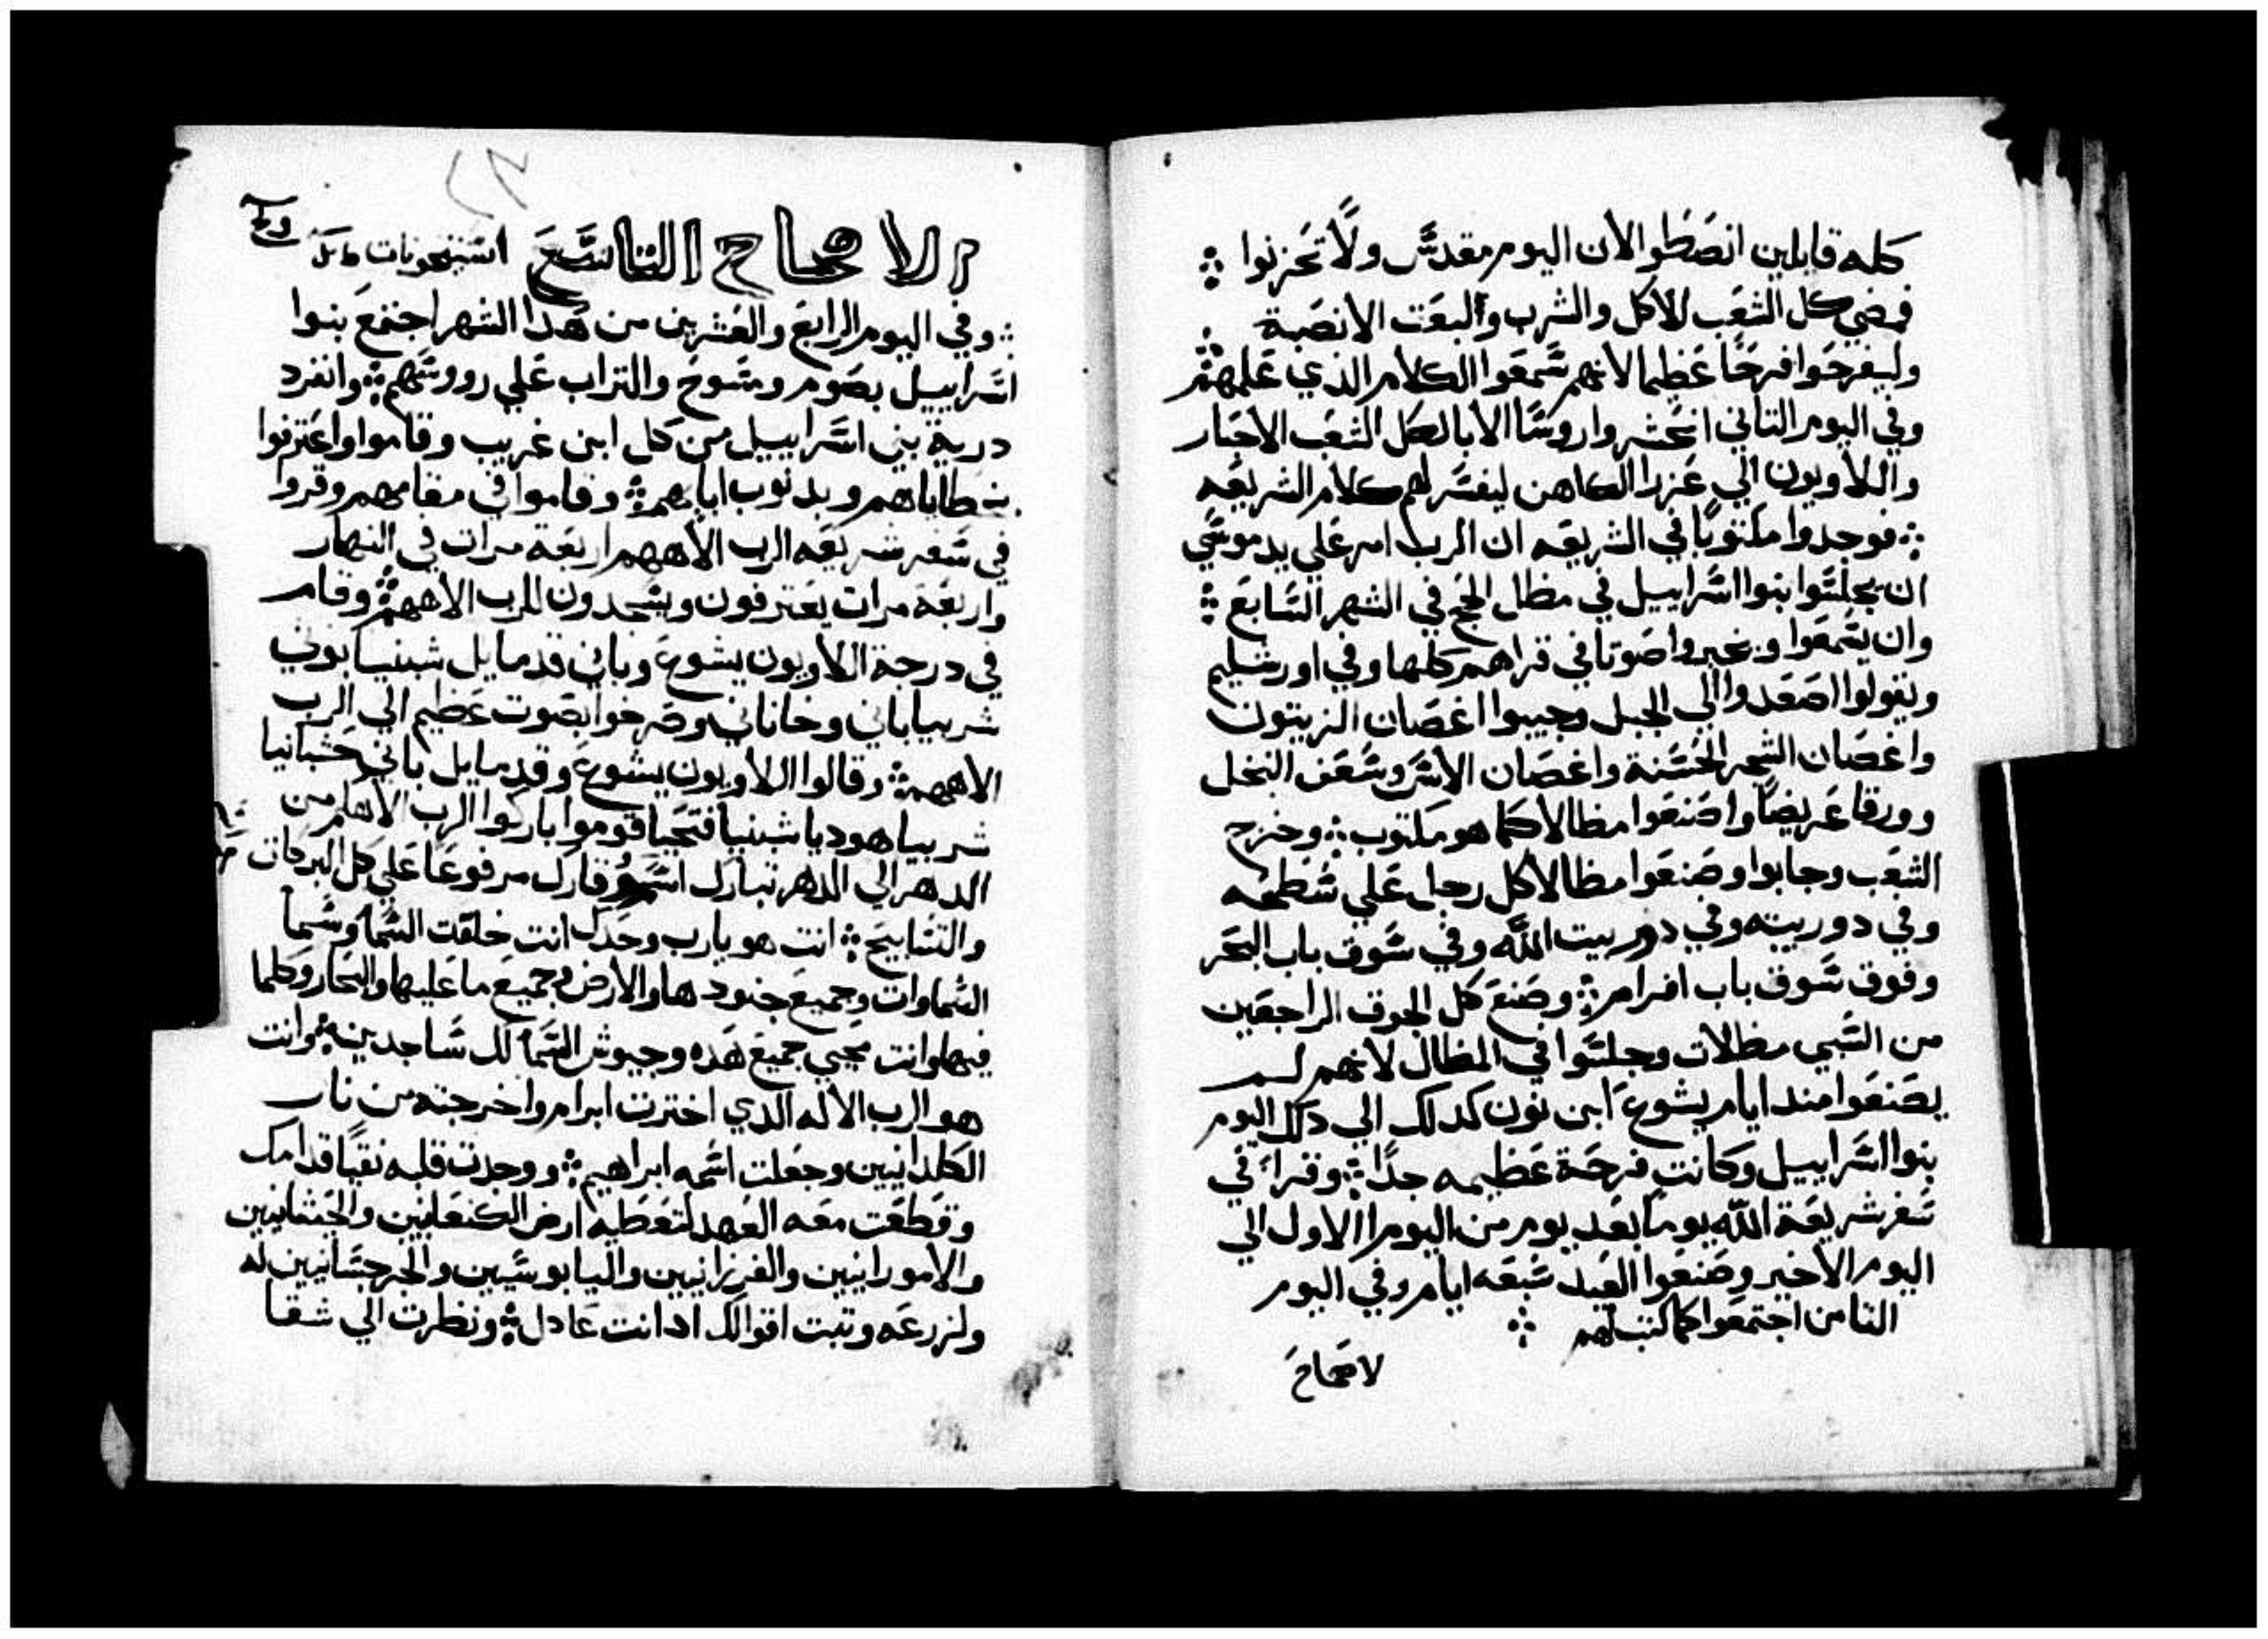 كله قايلين انصتطوا لان اليوم مقدس ولا تحزنوا ؞
فمضي كل الشعب للاكل والشرب والبعت الانصبة
وليفرحوا فرحًا عظيما لانهم سمعوا الكلام الذي علمهم ؞
وفي اليوم التاني انحشروا روسا الابا لكل الشعب الاحبار
واللاويون الي عزرا الكاهن ليفسر لهم كلام الشريعه
؞ فوجدوا مكتوبًا في الشريعه ان الرب امر علي يد موسي
ان يجلسوا بنوا اسراييل في مظال الحج في الشهر السابع ؞
وان يسمعوا ويخبروا صوتا في قراهم كلها وفي اورشليم
ويقولوا اصعدوا الي الجبل وجيبوا اغصان الزيتون
واغصان الشجر الحسنة واغصان الاس وسعف النخل
وورقا عريضا واصنعوا مظالا كما هو مكتوب ؞ وخرج
الشعب وجابوا وصنعوا مظالا كل رجل علي سطحه
وفي دور بيته وفي دور بيت الله وفي سوق باب البحر
وفوق سوق باب افرام ؞ وصنع كل الجوق الراجعين
من السبي مظلات وجلسوا في المظال لانهم لم
يصنعوا مند ايام يشوع ابن نون كدلك الي دلك اليوم
بنوا اسراييل وكانت فرحة عظيمه جدًا ؞ وقراء في
سفر شريعة الله يوما بعد يوم من اليوم الاول الي
اليوم الاخير وصنعوا العيد سبعه ايام وفي اليوم
التامن اجتمعوا كما كتب لهم ؞
لاصحاح
الاصحاح التاسع
؞ وفي اليوم الرابع والعشرين من هدا الشهر اجتمع بنوا
اسراييل بصوم ومسوح والتراب علي رووسهم ؞ وانفرد
درية بني اسراييل من كل ابن غريب وقاموا واعترفوا
بخطاياهم وبدنوب ابايهم ؞ وقاموا في مقامهم وقروا
في سفر شريعه الرب الاههم اربعه مرات في النهار
واربعه مرات يعترفون ويسجدون للرب الاههم ؞ وقام
في درجة اللاويون يشوع وباني قدمايل شبنيا بوني
شربيا باني وخاناني وصرخوا بصوت عظيم الي الرب
الاههم ؞ وقالوا اللاويون يشوع وقدمايل باني حشبانيا
شربيا هوديا شبنيا فتحيا قوموا باركوا الرب الاهكم من
الدهر الي الدهر تبارك اسم وقارك مرفوعا علي كل البركات
والتسابيح ؞ انت هو يارب وحدك انت خلقت السما وسما
السماوات وجميع جنودها والارض وجميع ما عليها والبحار وكلما
فيها وانت تحيي جميع هده وجيوش السما لك ساجدين ؞ وانت
هو الرب الاله الدي اخترت ابرام واخرجته من نار
الكلدانيين وجعلت اسمه ابراهيم ؞ ووجدت قلبه نقيًا قدامك
وقطعت معه العهد لتعطيه ارض الكنعانيين والحيثانيين
والامورانيين والفرزانيين واليابوسيين والجرجسانيين له
ولزرعه وتبت اقوالك اد انت عادل ؞ ونظرت الي شقا